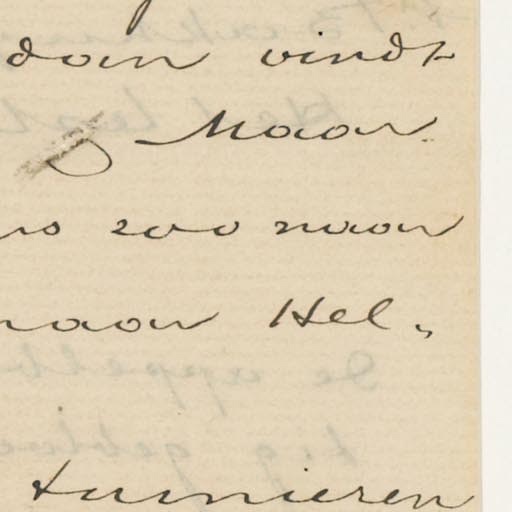 dan vindt
Maar
ns zoo naar
naar Hel„
tuinieren